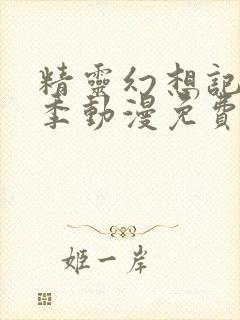 精靈幻想記
季動漫免費
姬一岸